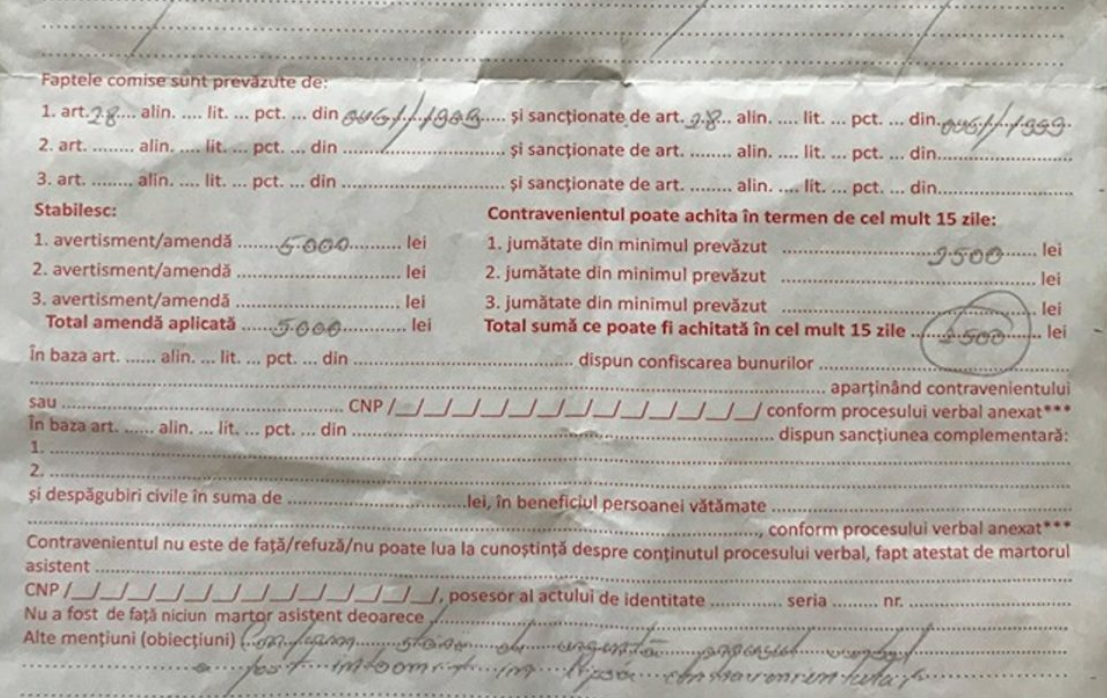 Faptele comise sunt prevăzute de:
1. art. 28 alin. .... lit. ... pct. ... din OUG 1/1999 și sancționate de art. 28 alin. .... lit. ... pct. ... din OUG 1/1999
2. art. ........ alin. .... lit. ... pct. ... din ............................ și sancționate de art. ........ alin. .... lit. ... pct. ... din.........................
3. art. ........ alin. .... lit. ... pct. ... din ............................ și sancționate de art. ........ alin. .... lit. ... pct. ... din.........................
Stabilesc:
Contravenientul poate achita în termen de cel mult 15 zile:
1. avertisment/amendă ........5000.......... lei
1. jumătate din minimul prevăzut ............................ lei
2. avertisment/amendă ............................ lei
2. jumătate din minimul prevăzut ............................................ lei
3. avertisment/amendă ............................ lei
3. jumătate din minimul prevăzut ............................................ lei
Total amendă aplicată ......5000............ lei
Total sumă ce poate fi achitată în cel mult 15 zile ............ lei
În baza art. ...... alin. ... lit. ... pct. ... din ...................................... dispun confiscarea bunurilor ............................................
............................................ aparținând contravenientului
sau ................................................ CNP /_/_/_/_/_/_/_/_/_/_/_/_/_/ conform procesului verbal anexat***
În baza art. ...... alin. ... lit. ... pct. ... din ............................................ dispun sancțiunea complementară:
1. ............................................
2. ............................................
și despăgubiri civile în suma de ................................lei, în beneficiul persoanei vătămate ............................................
............................................, conform procesului verbal anexat***
Contravenientul nu este de față/refuză/nu poate lua la cunoștință despre conținutul procesului verbal, fapt atestat de martorul
asistent ............................................
CNP /_/_/_/_/_/_/_/_/_/_/_/_/_/, posesor al actului de identitate ............ seria ........ nr. ............................
Nu a fost de față niciun martor asistent deoarece ............................................
Alte mențiuni (obiecțiuni) Conform stare de urgență procesul verbal
a fost întocmit în lipsa